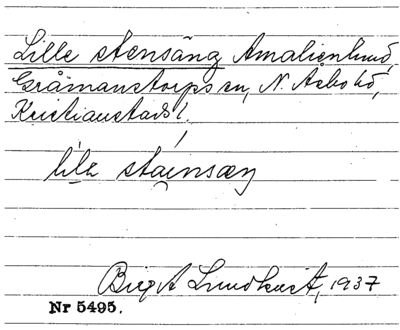 Lille stensäng Amalienlund,
Gråmanstorps sn, N. Åsbo hd,
Kristianstads l.
Birgit Lundkvist, 1937
Nr 5495.